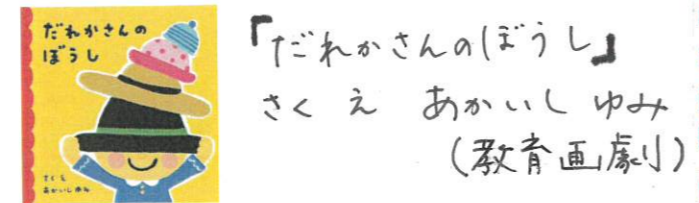 だれかさんの
ぼうし
さくえ
あかいしゆみ
『だれかさんのぼうし』
さく え あかいし ゆみ
(教育画劇)